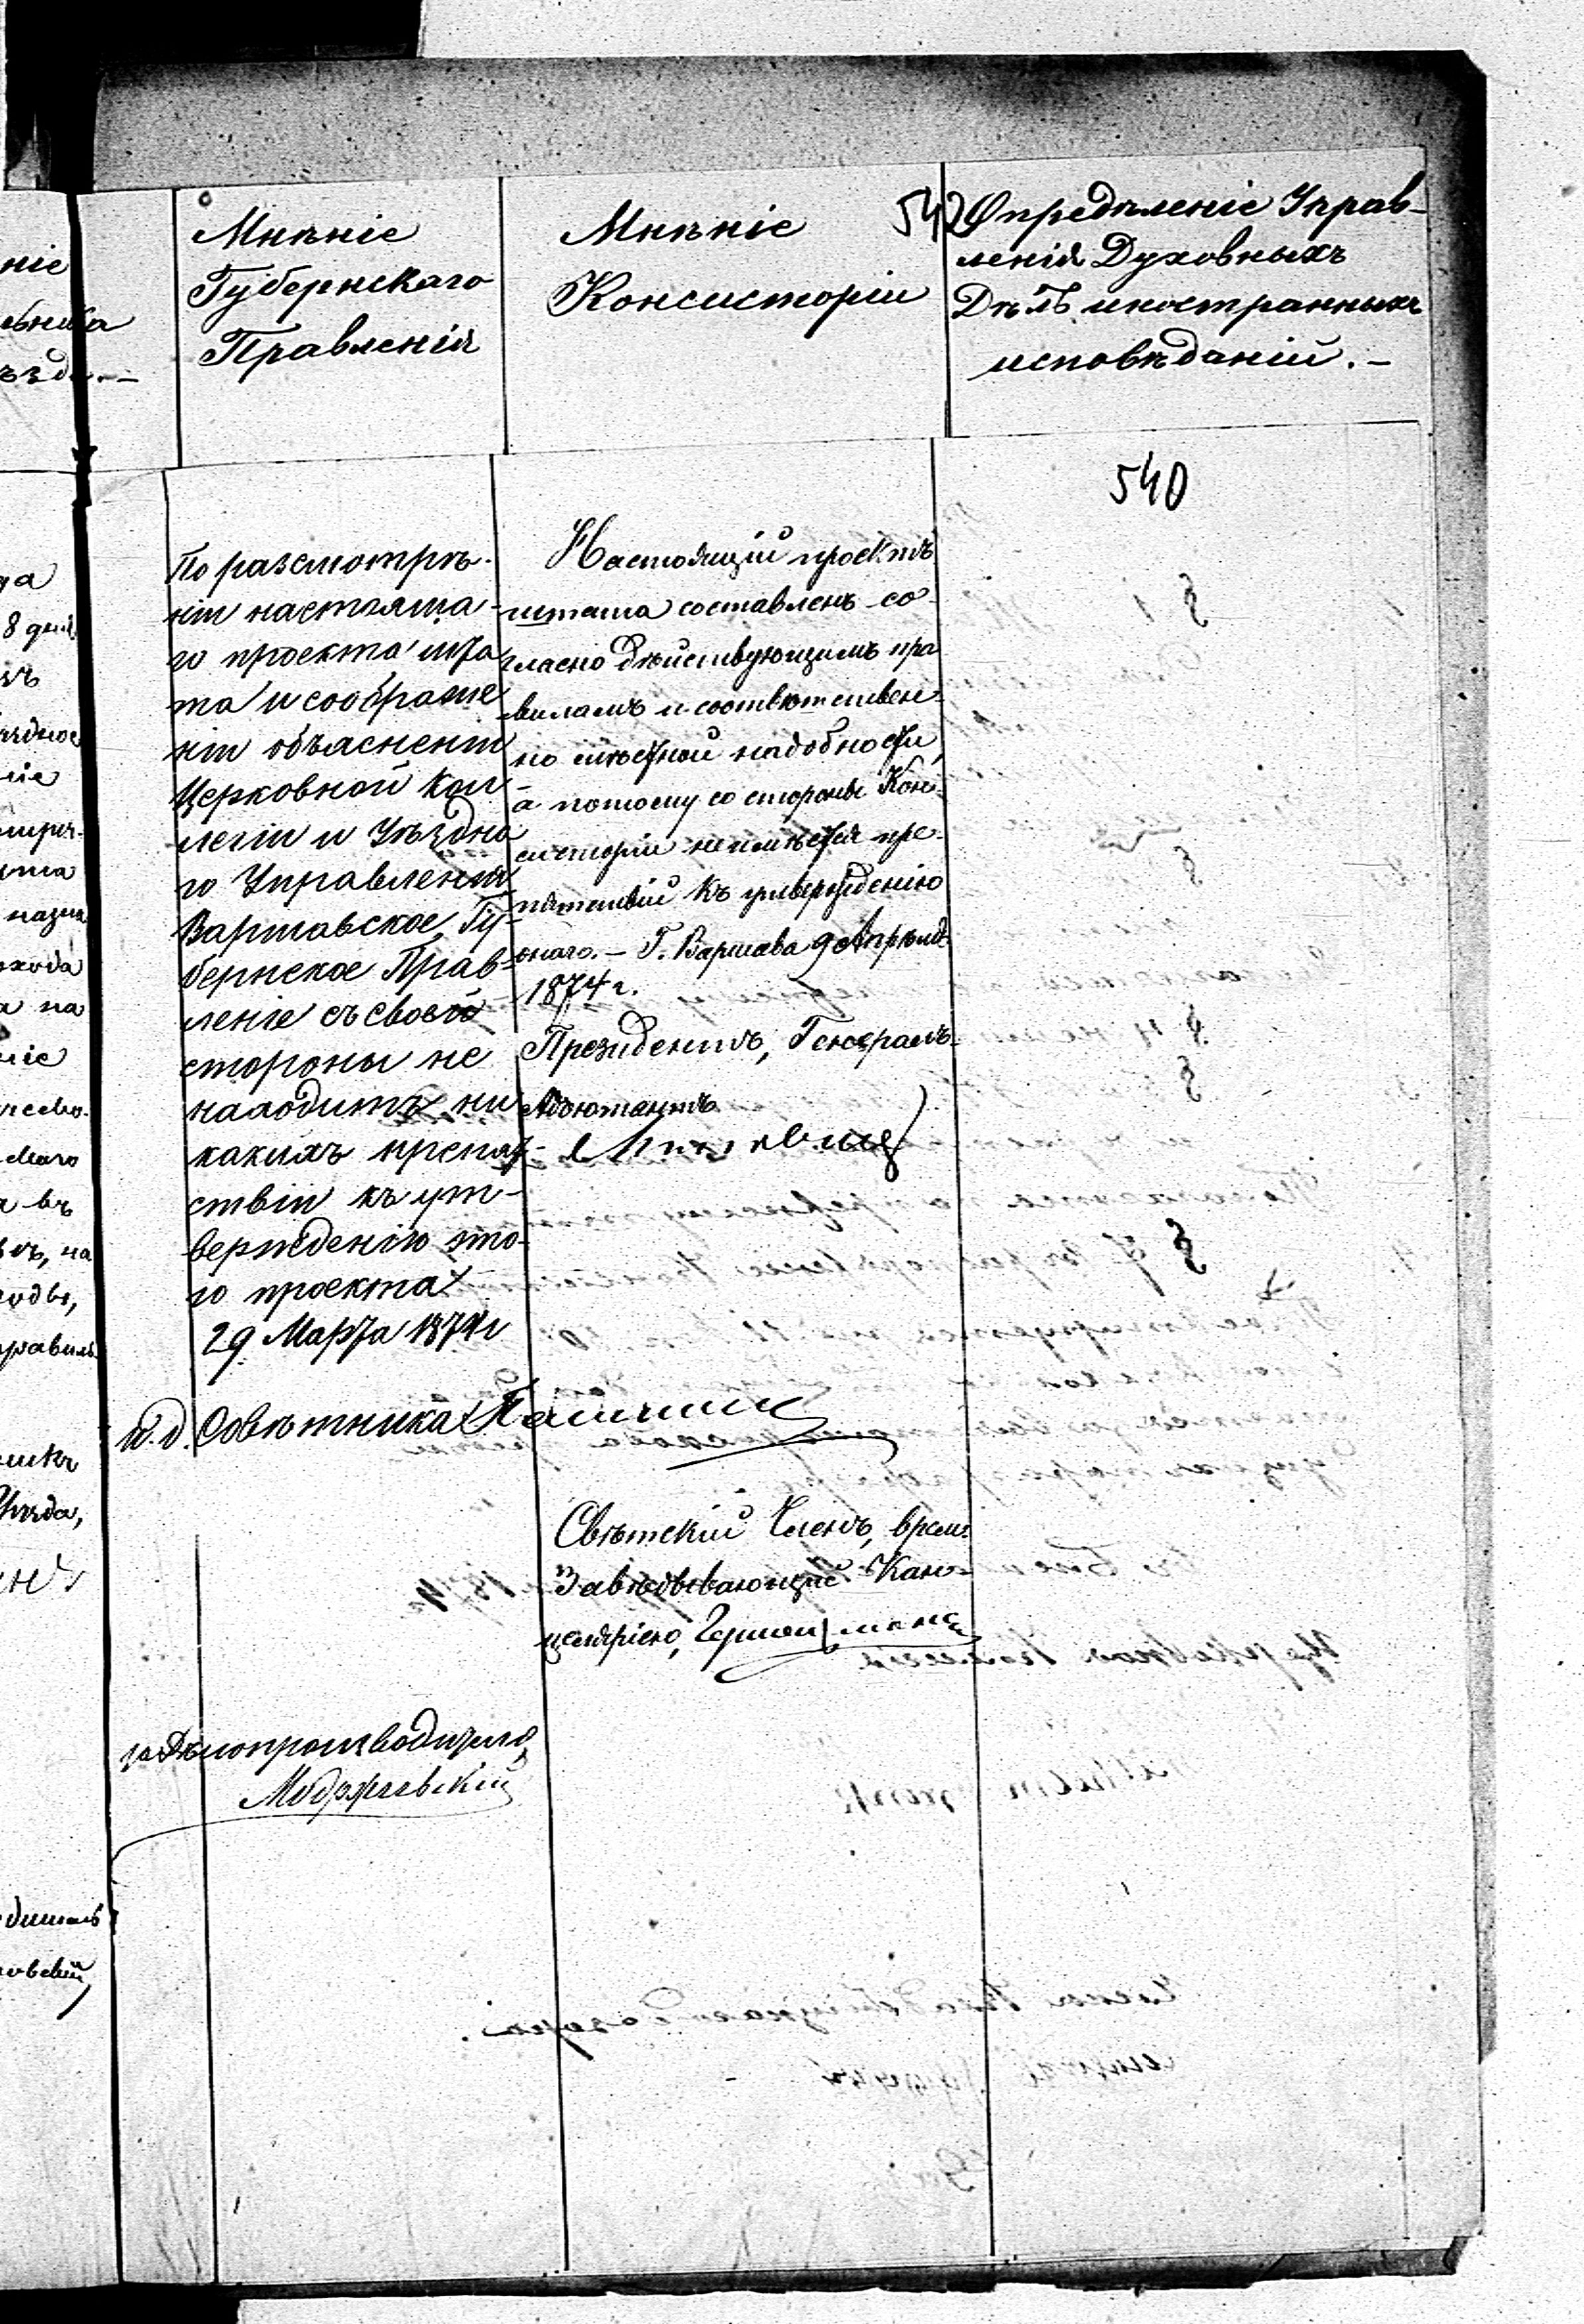 Мнѣніе
Губернскаго
Правленія
Мнѣніе
Консисторіи
542
Опредѣленіе Управ-
ленія Духовныхъ
Дѣлъ иностранныхъ
исповѣданій.-
540
По разсмотрѣ-
ніи настояща-
го проекта шта
та и соображе
ніи объясненій
Церковной Кол-
легіи и Уѣздна
го Управленія
Варшавское Гу-
бернское Прав-
леніе съ своей
стороны не
находитъ ни
какихъ препят-
ствій къ ут-
вержденію это-
го проекта
29 Марта 1874 г
И. д. Совѣтника
за Дѣлопроизводителя,
Модржевскій
Настоящій проектъ
штата составленъ со-
гласно дѣйствующимъ пра
виламъ и соотвѣтствен-
но мѣстной надобности,
а потому со стороны Кон-
систоріи неимѣется пре-
пятствій къ утвержденію
онаго.- Г. Варшава 9 Апрѣля
1874 г.
Президентъ, Генералъ-
Адъютантъ
Свѣтскій Членъ, врем.
Завѣдывающій Кан-
целяріею,
ніе
да
8 дня
на
вѣ
а на
ніе
а въ